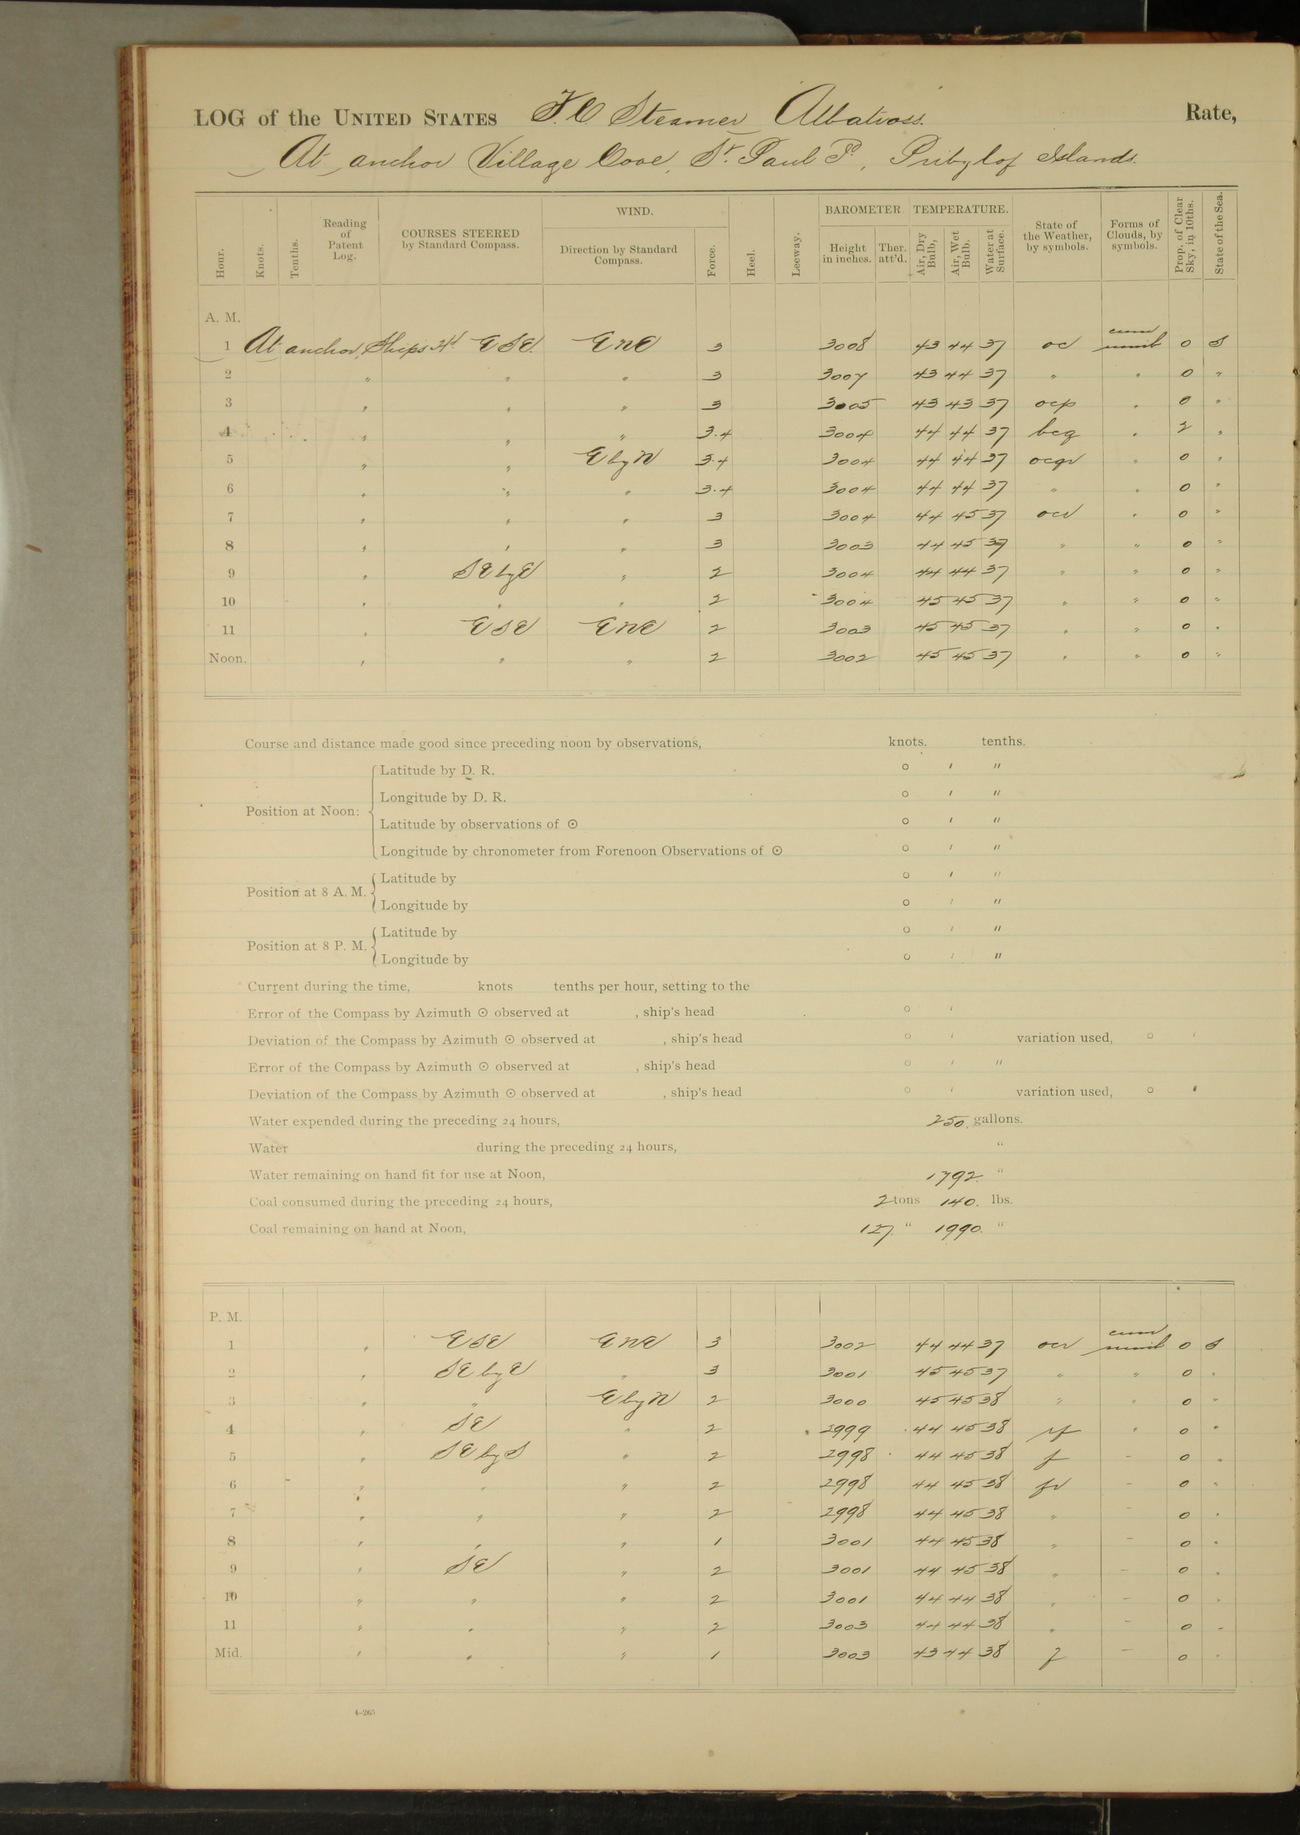 LOG of the UNITED STATES F. C Steamer Albatross. Rate,
At anchor Village Cove, St. Paul Id, Pribylof Islands.
Hour. Knots. Tenths. Reading of Patent Log. COURSES STEERED by Standard Compass. WIND. Direction by Standard Compass. Force. Heel. Leeway. BAROMETER Height in inches. Ther. att'd. TEMPERATURE. Air, Dry Bulb, Air, Wet Bulb. Water at Surface. State of the Weather, by symbols. Forms of Clouds, by symbols. Prop. of Clear Sky, in 10ths. State of the Sea.
A. M.
1 At anchor, Ships Hd ESE. ENE 3 3008 43 44 37 oc cum nimb 0 S
2 " " " 3 3007 43 44 37 " " 0 "
3 " " " 3 3005 43 43 37 ocp " 0 "
4 " " " 3.4 3004 44 44 37 bcq " 2 "
5 " " E by N 3.4 3004 44 44 37 ocqr " 0 "
6 " " " 3.4 3004 44 44 37 " " 0 "
7 " " " 3 3004 44 45 37 ocd " 0 "
8 " " " 3 3003 44 45 37 " " 0 "
9 " SE by E " 2 3004 44 44 37 " " 0 "
10 " " " 2 3004 45 45 37 " " 0 "
11 " ESE ENE 2 3003 45 45 37 " " 0 "
Noon. " " " 2 3002 45 45 37 " " 0 "
Course and distance made good since preceding noon by observations, knots. tenths.
Position at Noon: Latitude by D. R. ° ' "
Longitude by D. R. ° ' "
Latitude by observations of ☉ ° ' "
Longitude by chronometer from Forenoon Observations of ☉ ° ' "
Position at 8 A. M. Latitude by ° ' "
Longitude by ° ' "
Position at 8 P. M. Latitude by ° ' "
Longitude by ° ' "
Current during the time, knots tenths per hour, setting to the
Error of the Compass by Azimuth ☉ observed at , ship's head ° '
Deviation of the Compass by Azimuth ☉ observed at , ship's head ° ' variation used, ° '
Error of the Compass by Azimuth ☉ observed at , ship's head ° ' "
Deviation of the Compass by Azimuth ☉ observed at , ship's head ° ' variation used, ° '
Water expended during the preceding 24 hours, 250. gallons.
Water during the preceding 24 hours, "
Water remaining on hand fit for use at Noon, 1792 "
Coal consumed during the preceding 24 hours, 2 tons 140. lbs.
Coal remaining on hand at Noon, 127. " 1990. "
P. M.
1 " ESE ENE 3 3002 44 44 37 ocr cum nimb 0 S
2 " SE by E " 3 3001 45 45 37 " " 0 "
3 " " E by N 2 3000 45 45 38 " " 0 "
4 " SE " 2 2999 44 45 38 rf " 0 "
5 " SE by S " 2 2998 44 45 38 f - 0 "
6 " " " 2 2998 44 45 38 fr - 0 "
7 " " " 2 2998 44 45 38 " - 0 "
8 " " " 1 3001 44 45 38 " - 0 "
9 " SE " 2 3001 44 45 38 " - 0 "
10 " " " 2 3001 44 44 38 " - 0 "
11 " " " 2 3003 44 44 38 " - 0 "
Mid. " " " 1 3003 43 44 38 f - 0 "
4-265